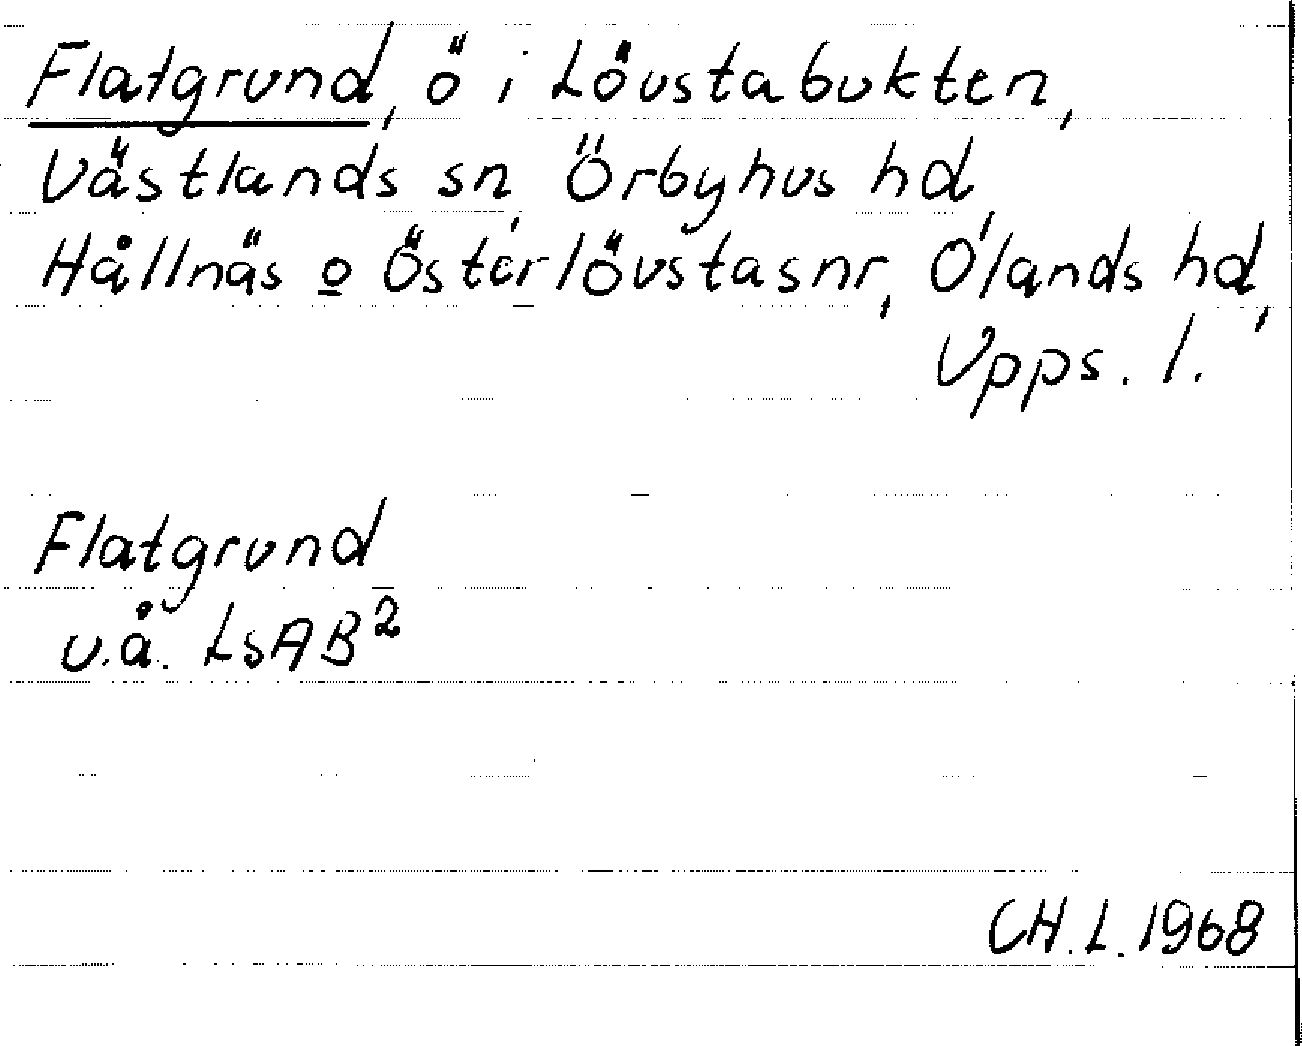 Flatgrund, ö i Lövstabukten,
Västlands sn, Örbyhus hd,
Hållnäs o Österlövstasnr, Olands hd,
Upps. l.
Flatgrund
u.å. LSAB²
CH.L. 1968